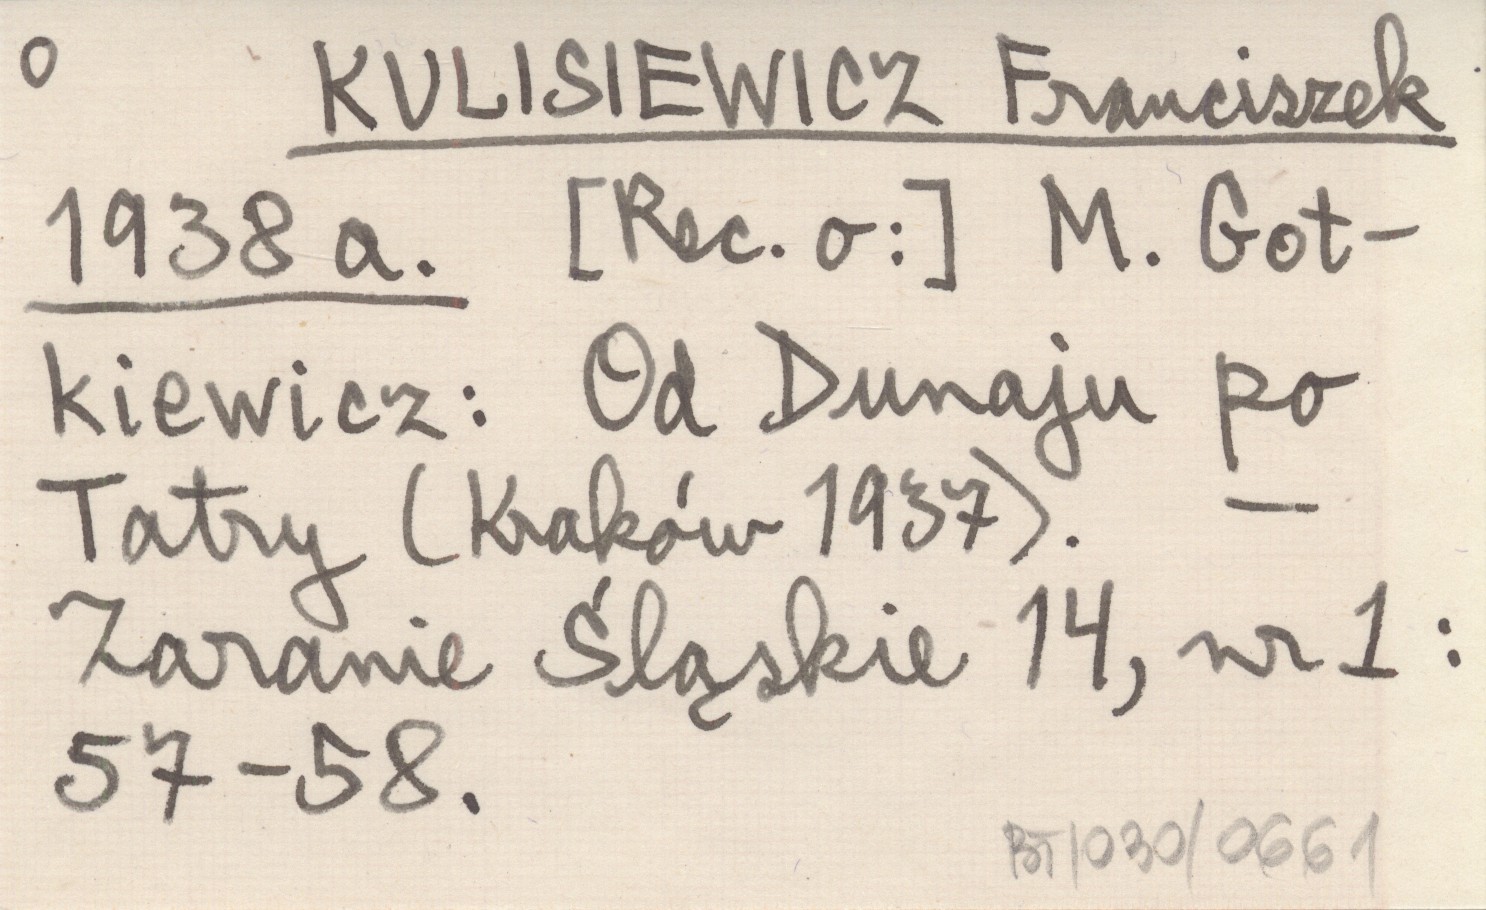 o KULISIEWICZ Franciszek
1938 a. [Rec. o:] M. Got-
kiewicz: Od Dunaju po
Tatry (Kraków 1937). —
Zaranie Śląskie 14, nr 1 :
57-58.
BT/030/0661